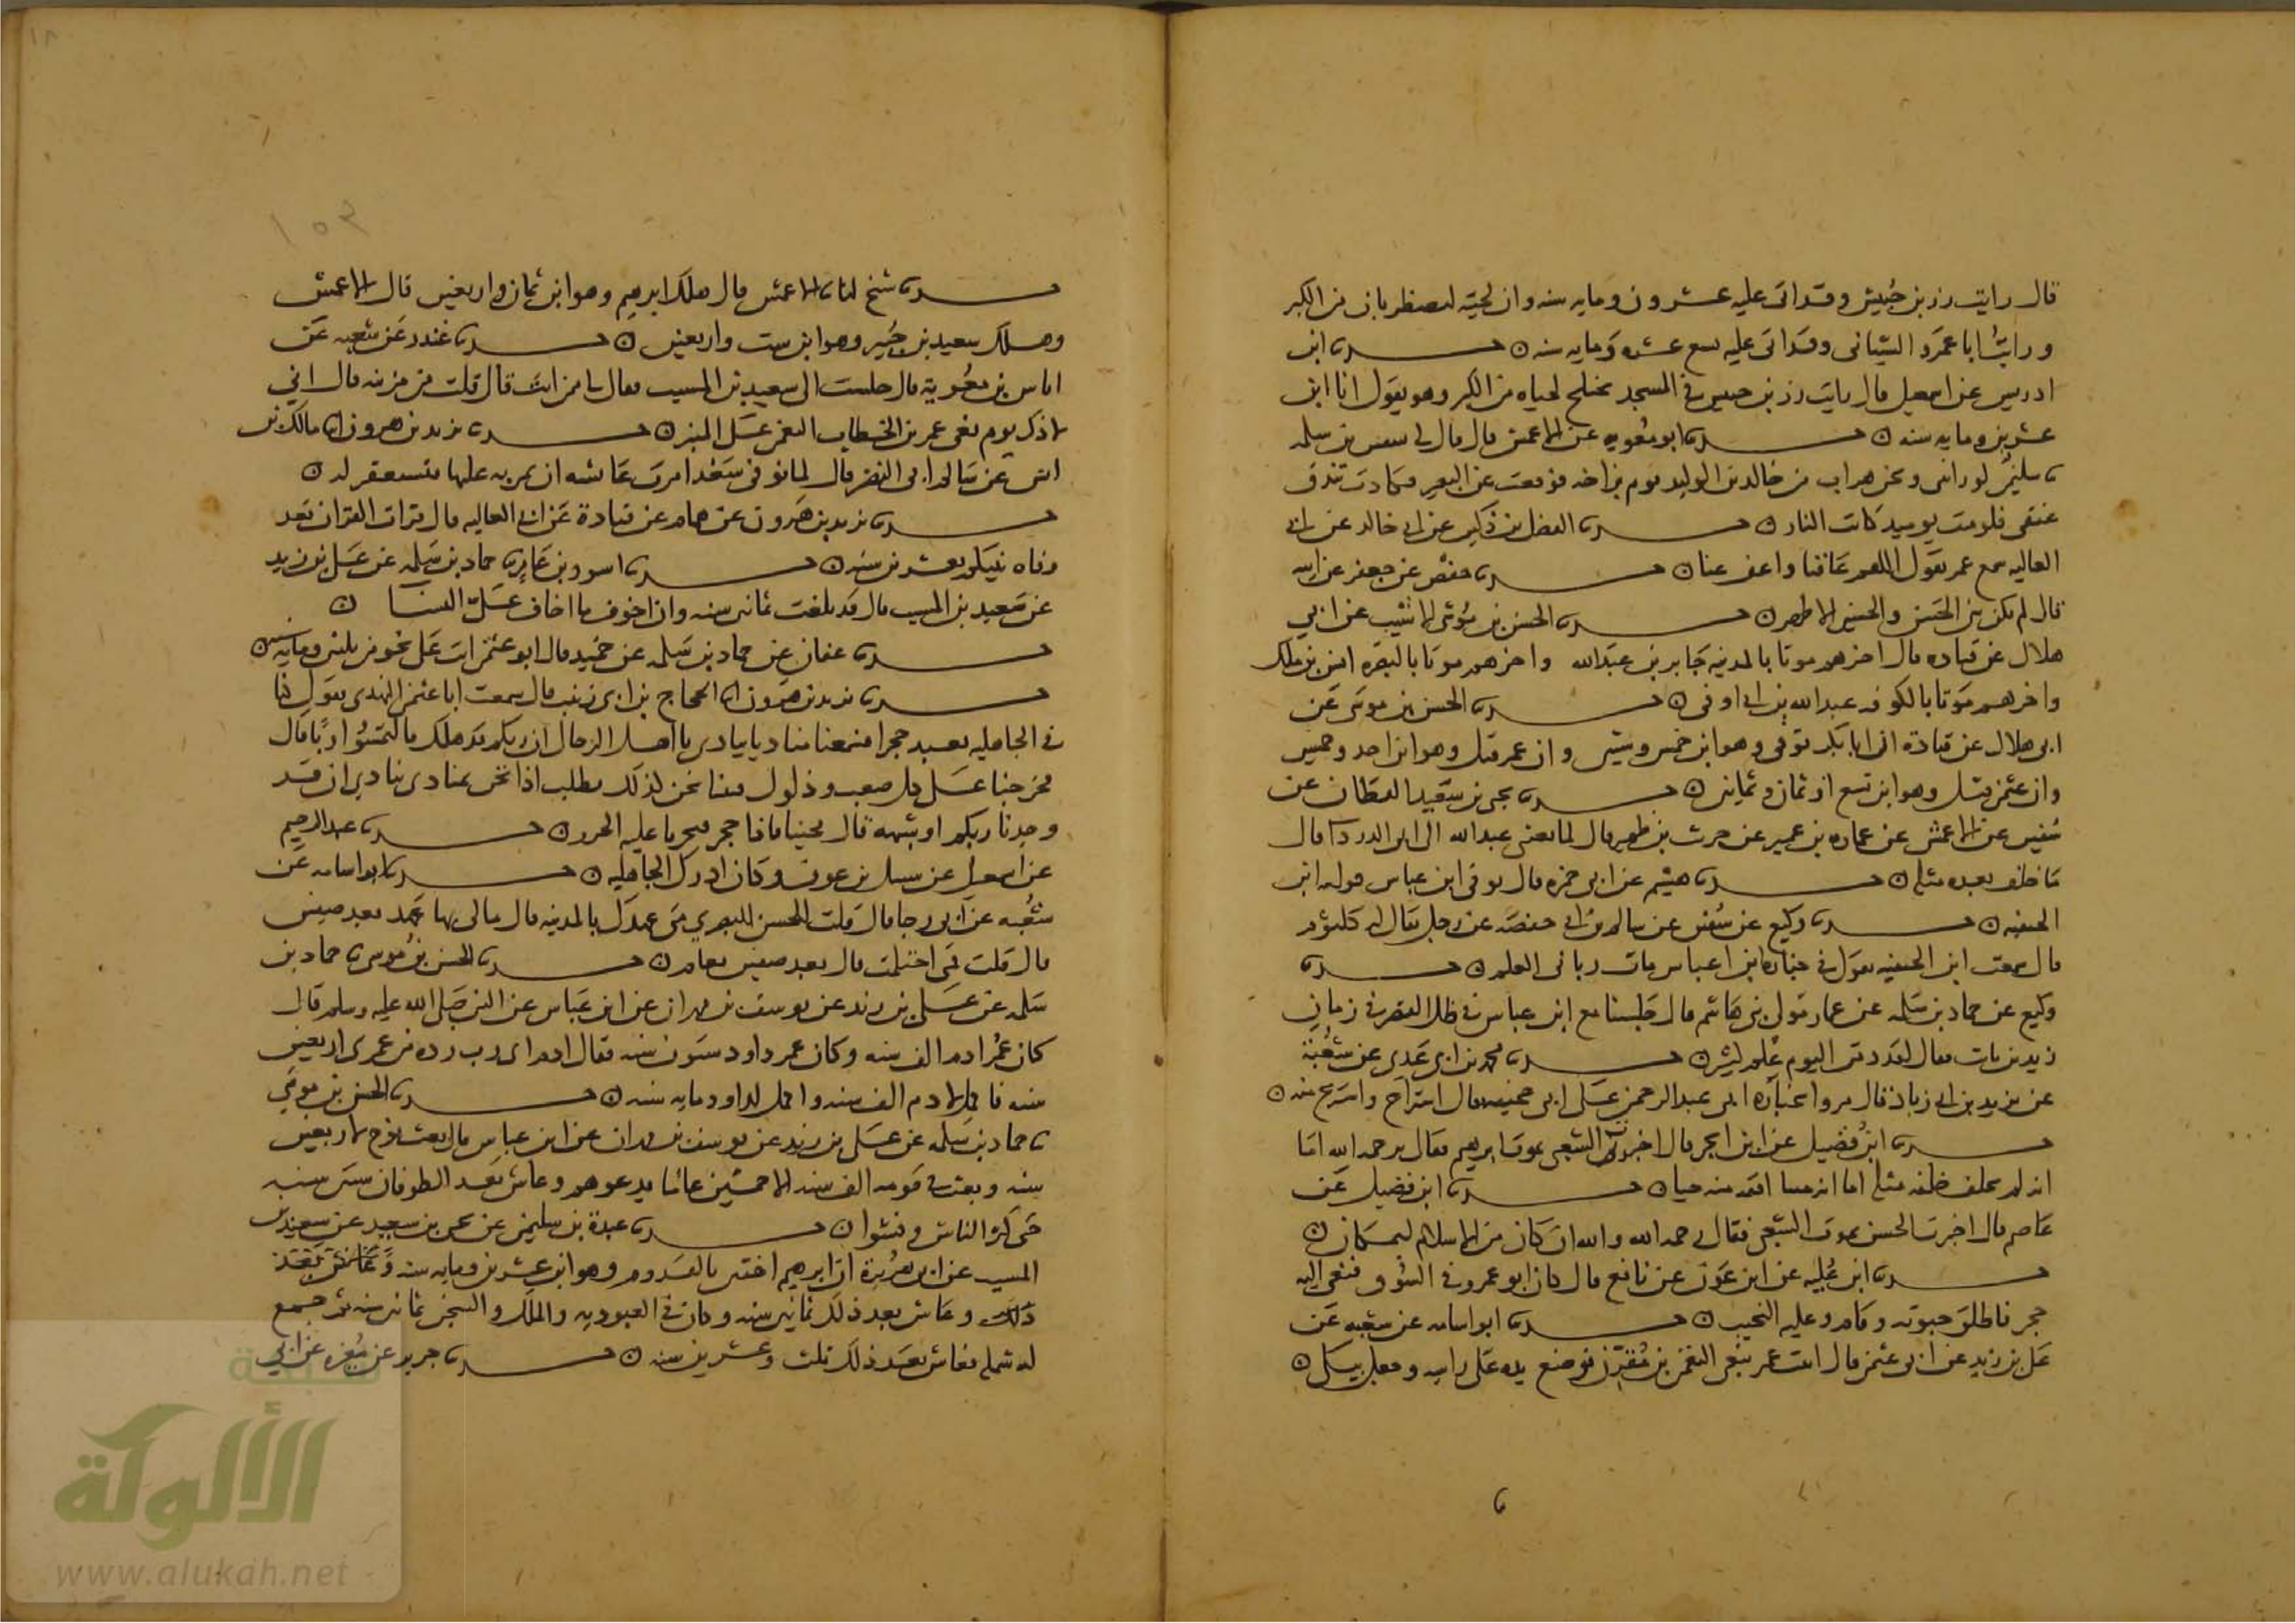 قال رايت زر بن حبيش وقد اتى عليه عشرون ومايه سنه وان لحييه لتضطربان من الكبر
ورايت ابا عمرو الشيباني وقد اتى عليه تسع عشره ومايه سنه ن حدثنا ابن
ادريس عن اسمعيل قال رايت زر بن حبيش في المسجد تختلج لحياه من الكبر وهو يقول انا ابن
عشرين ومايه سنه ن حدثنا ابو معويه عن الاعمش قال قال لي شقيق بن سلمه
يا سليمن لو رايتني ونحن هراب من خالد بن الوليد يوم بزاخه فوقعت عن البعير فكادت تندق
عنقي فلو مت يوميذ كانت النار ن حدثنا الفضل بن دكين عن ابي خالد عن ابي
العاليه سمع عمر يقول اللهم عافنا واعف عنا ن حدثنا حفص عن جعفر عن ابيه
قال لم يكن بين الحسن والحسين الا طهر ن حدثنا الحسن بن موسى الاشيب عن ابي
هلال عن قتاده قال اخرهم موتا بالمدينه جابر بن عبد الله واخرهم موتا بالبصره انس بن ملك
واخرهم موتا بالكوفه عبد الله بن ابي اوفى ن حدثنا الحسن بن موسى عن
ابي هلال عن قتادة ان ابا بكر توفي وهو ابن خمس وستين وان عمر قتل وهو ابن احد وخمسين
وان عثمن قتل وهو ابن تسع او ثمان وثمانين ن حدثنا يحيى بن سعيد القطان عن
سفين عن الاعمش عن عماره بن عمير عن حريث بن ظهير قال لما نعي عبد الله الى ابي الدردا قال
ما خلف بعده مثله ن حدثنا هشيم عن ابي حمزه قال توفي ابن عباس فوليه ابن
الحنفيه ن حدثنا وكيع عن سفين عن سالم بن ابي حفصه عن رجل يقال له كلثوم
قال سمعت ابن الحنفيه يقول في جنازه ابن عباس مات رباني العلم ن حدثنا
وكيع عن حماد بن سلمه عن عمار مولى بني هاشم قال جلسنا مع ابن عباس في ظل القصر في زمان
زيد بن ثابت فقال لقد دفن اليوم علم كثير ن حدثنا محمد بن ابي عدي عن شعبة
عن يزيد بن ابي زياد قال مروا بجنازه ابي عبد الرحمن على ابي جحيفه فقال استراح واستريح منه ن
حدثنا ابن فضيل عن ابن ابجر قال اخبرت الشعبي بموت ابرهيم فقال يرحمه الله اما
انه لم يخلف خلفه مثله اما انه ميتا افقه منه حيا ن حدثنا ابن فضيل عن
عاصم قال اخبرت الحسن بموت الشعبي فقال رحمه الله والله ان كان من الاسلام لبمكان ن
حدثنا ابن عليه عن ابن عون عن نافع قال كان ابن عمر في السوق فنعي اليه
حجر فاطلق حبوته وقام وعليه النحيب ن حدثنا ابو اسامه عن شعبه عن
علي بن زيد عن ابي عثمن قال اتيت عمر بنعي النعمن بن مقرن فوضع يده على راسه وجعل يبكي ن
حدثنا شيخ لنا نا الاعمش قال هلك ابرهيم وهو ابن ثمان واربعين قال الاعمش
وهلك سعيد بن جبير وهو ابن ست واربعين ن حدثنا غندر عن شعبه عن
اياس بن معوية قال جلست الى سعيد بن المسيب فقال لي ممن انت قال قلت من مزينه قال اني
لاذكر يوم نعى عمر بن الخطاب النعمن على المنبر ن حدثنا يزيد بن هرون انا مالك بن
انس عن سالم ابي النضر قال لما توفي سعد امرت عائشه ان يمر به عليها فتستغفر له ن
حدثنا يزيد بن هرون عن همام عن قتادة عن ابي العاليه قال قرات القران بعد
وفاه نبيكم بعشر سنين ن حدثنا اسود بن عامر نا حماد بن سلمه عن علي بن زيد
عن سعيد بن المسيب قال قد بلغت ثمانين سنه وان اخوف ما اخاف علي النسا ن
حدثنا عفان عن حماد بن سلمه عن حميد قال ابو عثمن اتت علي نحو من ثلثين ومايه سنه ن
حدثنا يزيد بن هرون انا الحجاج بن ابي زينب قال سمعت ابا عثمن النهدي يقول كنا
في الجاهليه نعبد حجرا فسمعنا مناديا ينادي يا اهل الرحال ان ربكم قد هلك فالتمسوا ربا قال
فخرجنا على كل صعب وذلول فبينا نحن كذلك نطلب اذا نحن بمنادي ينادي انا قد
وجدنا ربكم او شبهه قال فجينا فاذا حجر فنحرنا عليه الجزر ن حدثنا عبد الرحيم
عن اسمعيل عن شبيل بن عوف وكان ادرك الجاهليه ن حدثنا ابو اسامه عن
شعبه عن ابي رجا قال قلت للحسن البصري متى عهدك بالمدينه قال مالي بها عهد بعد صفين
قال قلت متى احتلمت قال بعد صفين بعام ن حدثنا الحسن بن موسى نا حماد بن
سلمه عن علي بن زيد عن يوسف بن مهران عن ابن عباس عن النبي صلى الله عليه وسلم قال
كان عمر ادم الف سنه وكان عمر داود ستون سنه فقال ادم اى رب زده من عمري اربعين
سنه فاكمل لادم الف سنه واكمل لداود مايه سنه ن حدثنا الحسن بن موسى
نا حماد بن سلمه عن علي بن زيد عن يوسف بن مهران عن ابن عباس قال بعث نوح لاربعين
سنه وبعث في قومه الف سنه الا خمسين عاما يدعوهم وعاش بعد الطوفان ستين سنه
حتى كثر الناس وفشوا ن حدثنا عبدة بن سليمن عن يحيى بن سعيد عن سعيد بن
المسيب عن ابي هريرة ان ابرهيم اختتن بالقدوم وهو ابن عشرين ومايه سنه وعاش بعد
ذلك وعاش بعد ذلك ثمانين سنه وكان في العبوديه والملك والسجن ثمانين سنه ثم جمع
له شمله فعاش بعد ذلك ثلث وعشرين سنه ن حدثنا جرير عن مغيره عن ابي
الألوكة
www.alukah.net